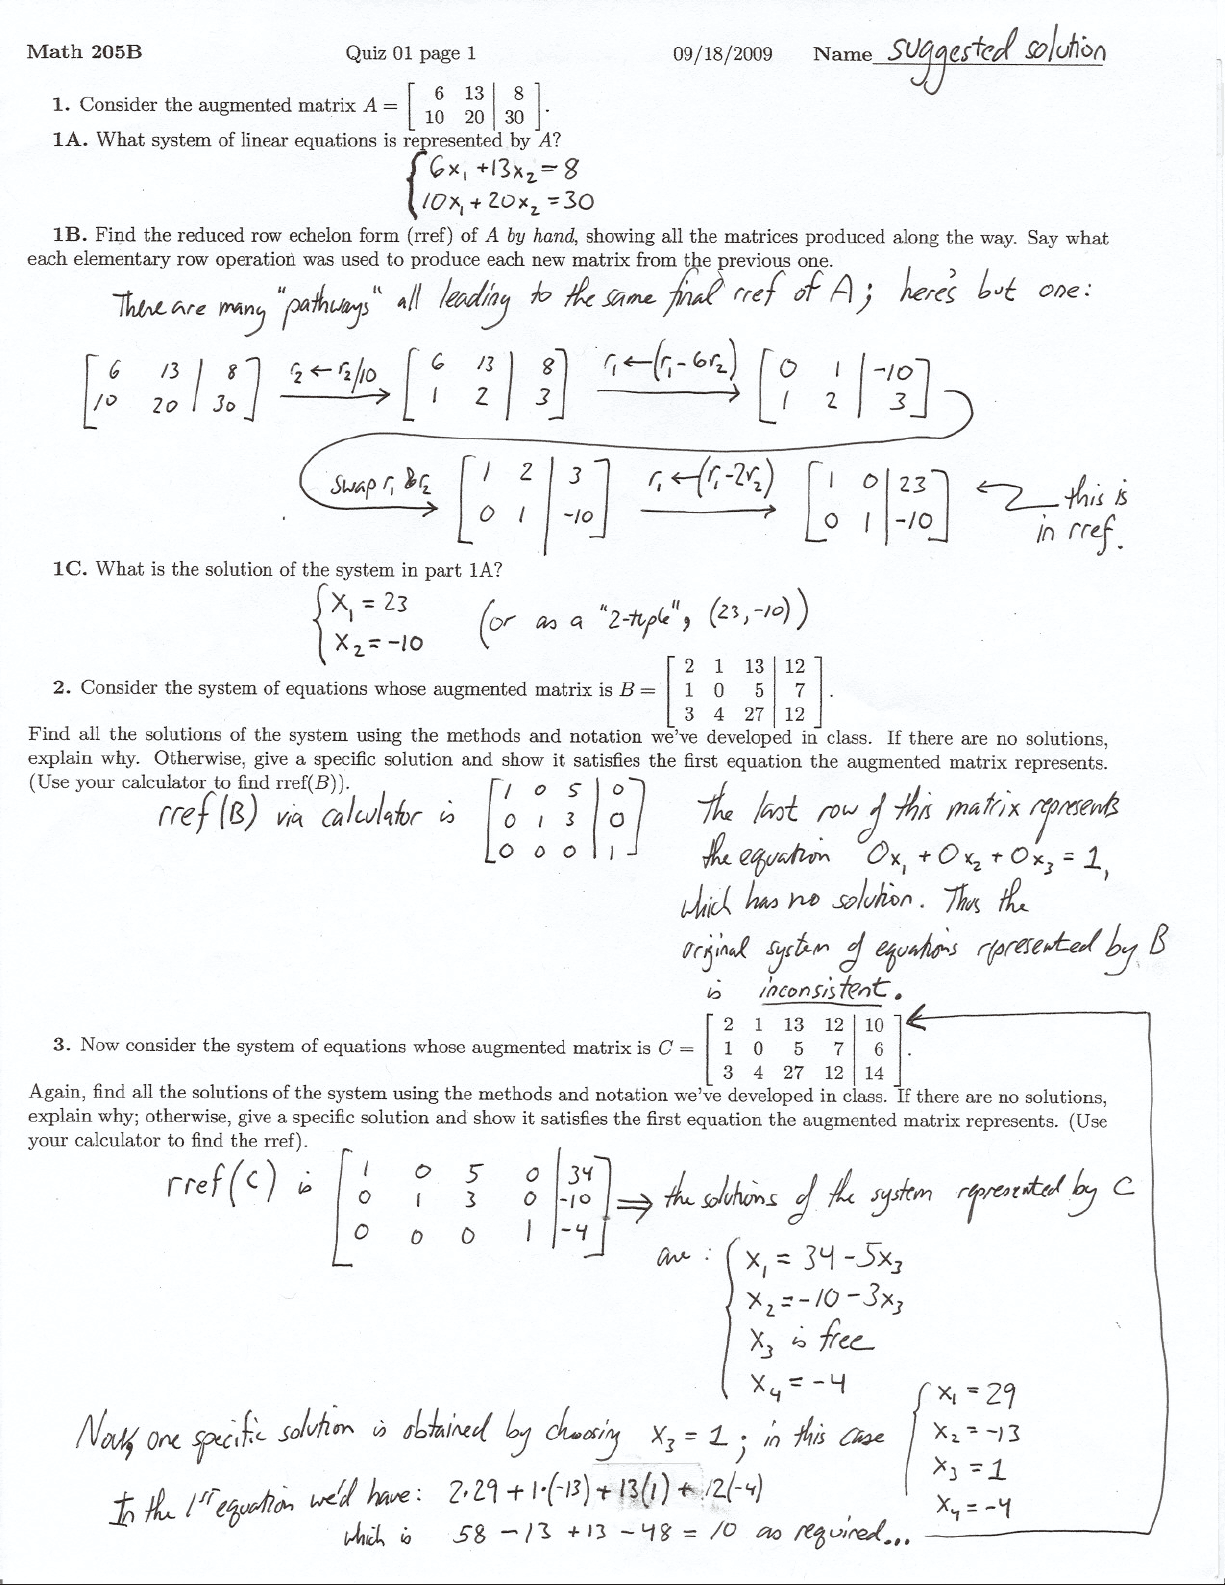 Math 205B Quiz 01 page 1 09/18/2009 Name suggested solution
1. Consider the augmented matrix A = [ 6 13 | 8 ]
[ 10 20 | 30 ].
1A. What system of linear equations is represented by A?
{ 6x₁ + 13x₂ = 8
10x₁ + 20x₂ = 30
1B. Find the reduced row echelon form (rref) of A by hand, showing all the matrices produced along the way. Say what
each elementary row operation was used to produce each new matrix from the previous one.
There are many "pathways" all leading to the same final rref of A; here's but one:
[ 6 13 | 8 ] r₂ ← r₂/10 [ 6 13 | 8 ] r₁ ← (r₁ - 6r₂) [ 0 1 | -10 ]
[ 10 20 | 30 ] → [ 1 2 | 3 ] → [ 1 2 | 3 ]
swap r₁ & r₂ [ 1 2 | 3 ] r₁ ← (r₁ - 2r₂) [ 1 0 | 23 ] this is
→ [ 0 1 | -10 ] → [ 0 1 | -10 ] in rref.
1C. What is the solution of the system in part 1A?
{ x₁ = 23 (or as a "2-tuple", (23, -10))
x₂ = -10
2. Consider the system of equations whose augmented matrix is B = [ 2 1 13 | 12 ]
[ 1 0 5 | 7 ]
[ 3 4 27 | 12 ].
Find all the solutions of the system using the methods and notation we've developed in class. If there are no solutions,
explain why. Otherwise, give a specific solution and show it satisfies the first equation the augmented matrix represents.
(Use your calculator to find rref(B)).
rref(B) via calculator is [ 1 0 5 | 0 ]
[ 0 1 3 | 0 ]
[ 0 0 0 | 1 ]
The last row of this matrix represents
the equation 0x₁ + 0x₂ + 0x₃ = 1,
which has no solution. Thus the
original system of equations represented by B
is inconsistent.
3. Now consider the system of equations whose augmented matrix is C = [ 2 1 13 12 | 10 ]
[ 1 0 5 7 | 6 ]
[ 3 4 27 12 | 14 ].
Again, find all the solutions of the system using the methods and notation we've developed in class. If there are no solutions,
explain why; otherwise, give a specific solution and show it satisfies the first equation the augmented matrix represents. (Use
your calculator to find the rref).
rref(C) is [ 1 0 5 0 | 34 ]
[ 0 1 3 0 | -10 ]
[ 0 0 0 1 | -4 ]
⇒ the solutions of the system represented by C
are: { x₁ = 34 - 5x₃
x₂ = -10 - 3x₃
x₃ is free
x₄ = -4
Now, one specific solution is obtained by choosing x₃ = 1; in this case
{ x₁ = 29
x₂ = -13
x₃ = 1
x₄ = -4
In the 1ST equation we'd have: 2·29 + 1·(-13) + 13(1) + 12(-4)
which is 58 - 13 + 13 - 48 = 10 as required...